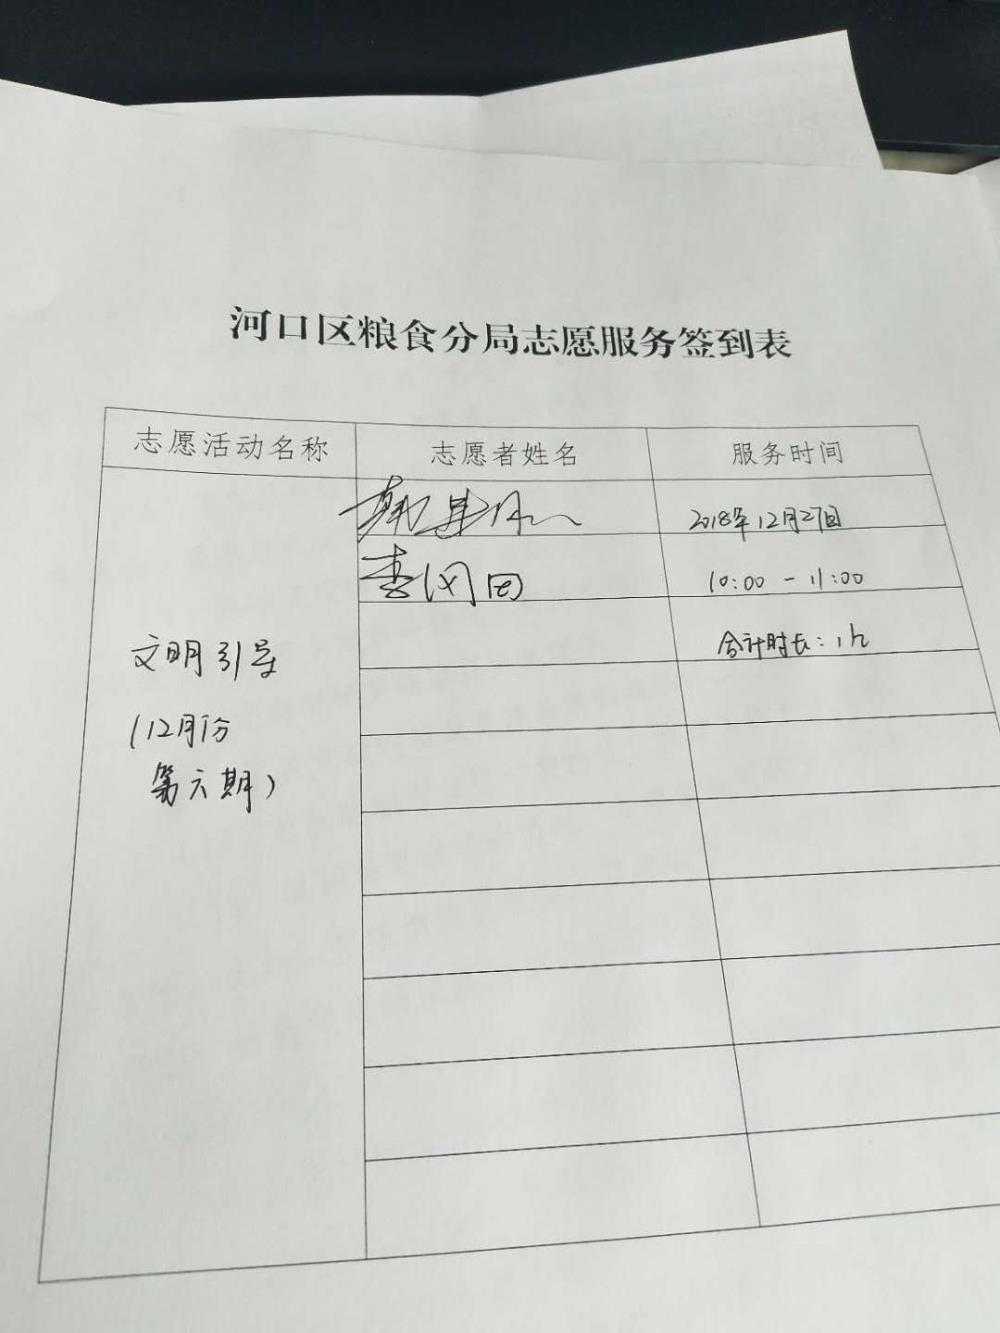 河口区粮食分局志愿服务签到表
志愿活动名称 志愿者姓名 服务时间
2018年12月27日
李冈田
10:00 - 11:00
合计时长：1h
文明引导
（12月份
第六期）